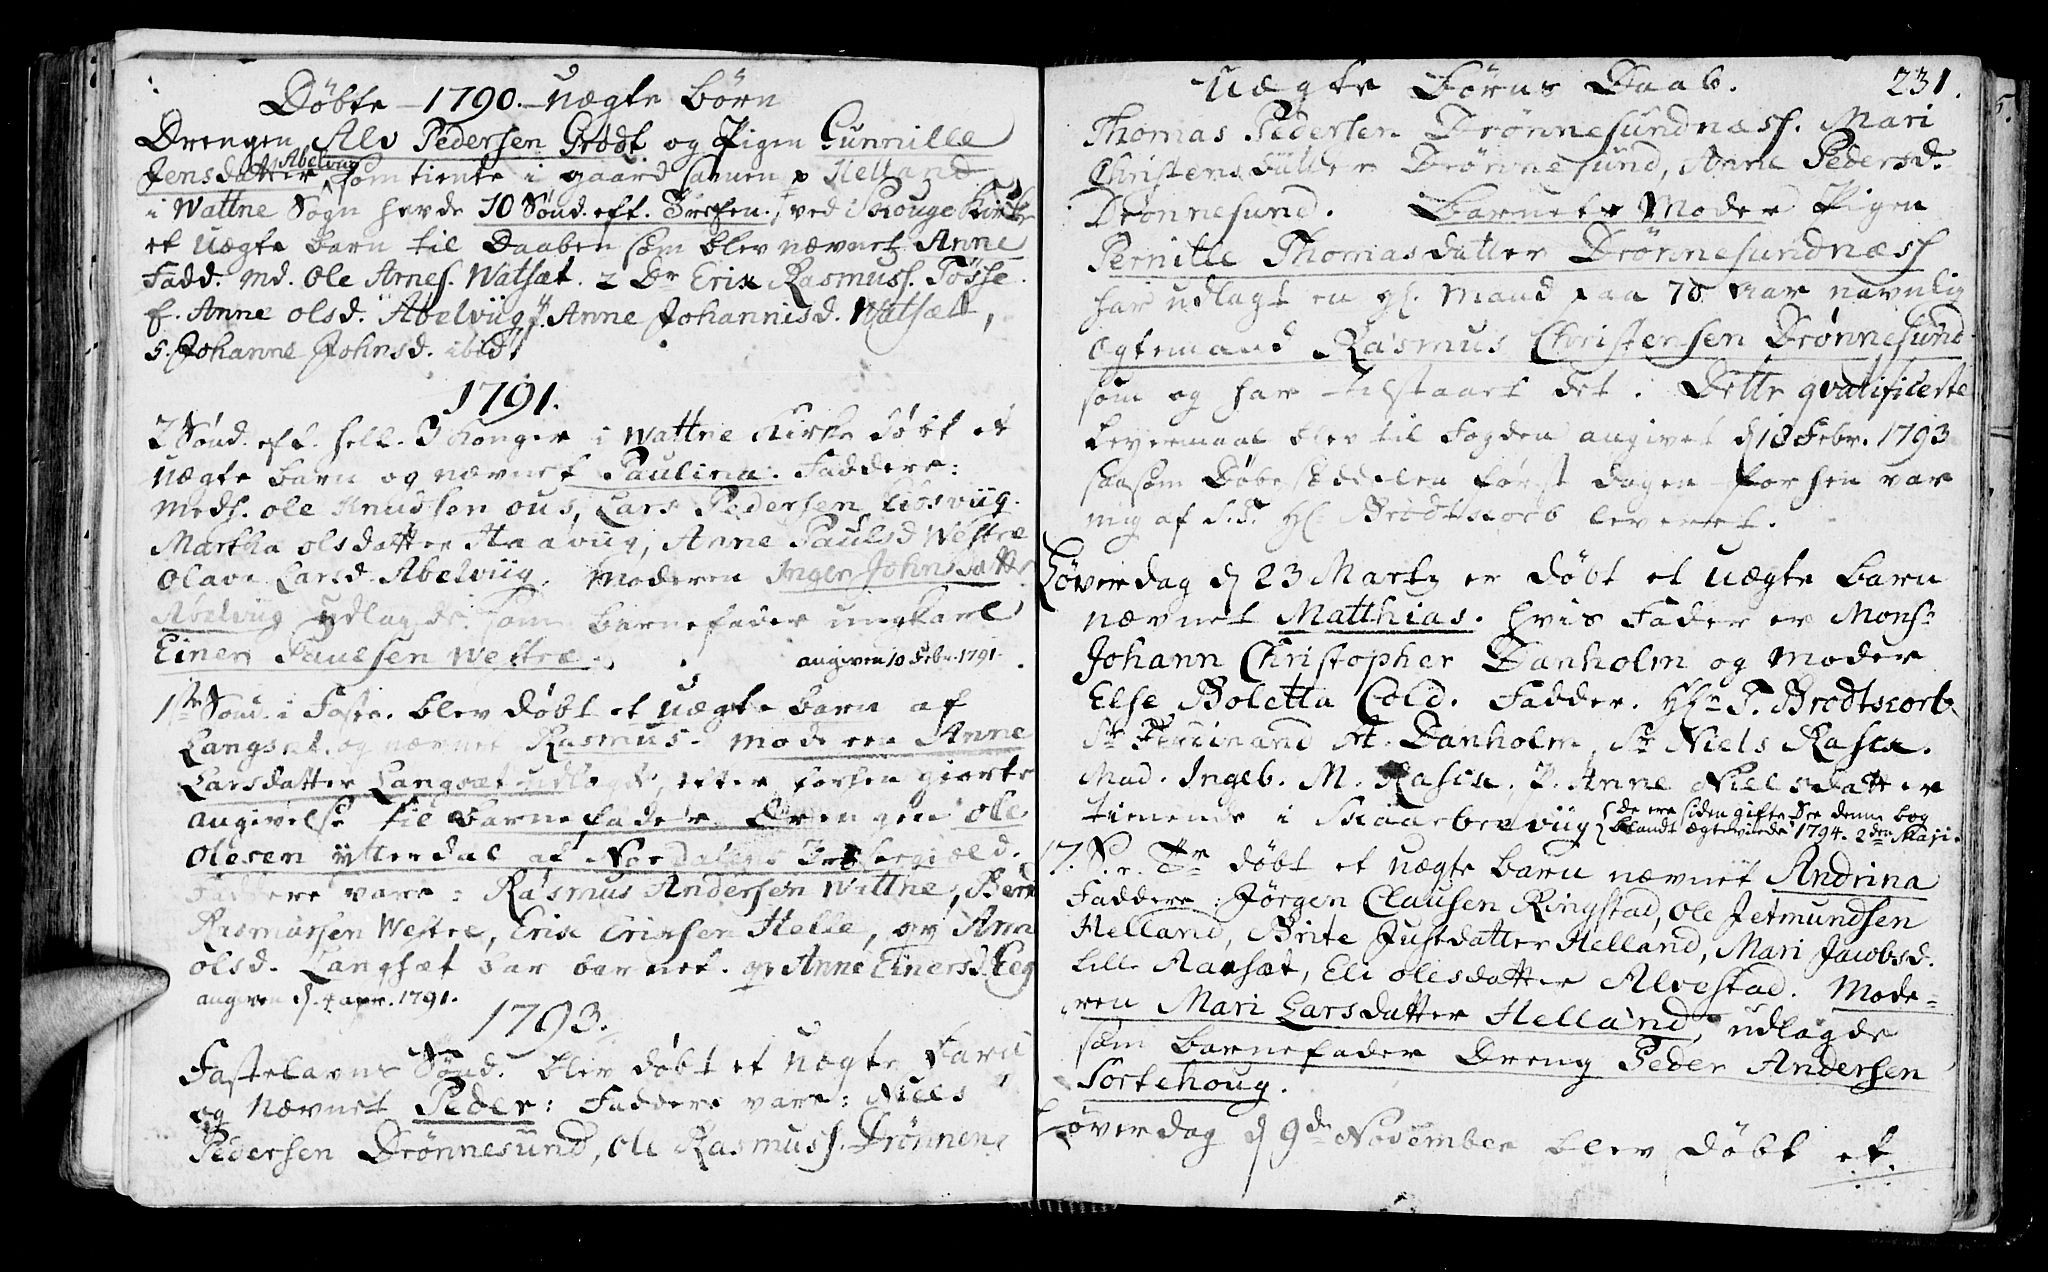 Döbte 1790. uægte börn
Drengen Alv Pedersen Grodt og Pigen Gunnille
Jensdatter Abelviig som tiente i gaard sammen p Helland
i Wattne Sogn havde 10 Sönd. eft. Trefen., ved Schouge Kirke
et uægte barn til Daaben som blev nævnet Anne
Fadd. Md. Ole Arnes. Watsæt. 2 Dr Erik Rasmuss. Tösse
f. Anne olsd. Abelviig P. Anne Johannisd. Watsæt,
5. Johanne Johnsd. ibid.
1791.
2 Sönd. eft. hell. 3 konger i Wattne Kirke döbt et
uægte barn og nævnet Paulina. Faddere:
Mads. ole Knudsen ous, Lars Pedersen Libsviig.
Martha olsdatter Haaviig, Anne Paulsd Westre
Olave Larsd. Abelviig. Moderen Inger Johnsdatter
Abelviig udlagde som barnefader ungkarl
Einer Paulsen Westre.
angiven 10 Febr. 1791.
1ste Sönd. i Faste. blev döbt et uægte barn af
Langsæt og nævnet Rasmus. moderen Anne
Larsdatter Langsæt udlagde, efter forhen giorte
angivelse til barnefader Drengen ole
olesen ytterdal af Nordalens Præstegield.
Faddere vare: Rasmus Andersen Wattne, Bernt
Rasmussen Westre, Erik Ericksen Helle, og Anne
olsd. Langsæt bar barnet. gp Anne Einersd. Leg
angiven d. 4 apr. 1791.
1793.
Fastelavns Sönd. blev döbt et uægte barn
og nævnet Peder: Faddere vare: Niels
Pedersen Drönnesund, Ole Rasmuss. Drönnene
uægte börns Daab. 231.
Thomas Pedersen Drönnesundnæss. Mari
Christensdatter Drönnesund, Anne Pedersd.
Drönnesund. Barnets Moder Pigen
Pernille Thomasdatter Drönnesundnæss
har udlagt en gl. Mand paa 70 aar navnlig
ægtemand Rasmus Christensen Drönnesund
som og har tilstaaet det. Dette qvalificerte
Leyermaal blev til Fogden angivet d 18 Febr. 1793
saasom Döbeseddelen först dagen forhen var
mig af S.T. Hr Brodtkorb leveret.
Löverdag d 23 Martz er döbt et uægte barn
nævnet Matthias. hvis Fader er Monsr
Johann Christopher Danholm og moder
Else Boletta Cold. Fadder. Hr P. Brodtkorb
Sr Ferdinand A. Danholm, Sr Niels Rasch.
Mad. Ingeb. M. Rasch, P. Anne Nielsdatter
tienende i Skaarbreviig (De ere siden gifte See denne bog
blandt Ægteviede 1794. 2den Maji.
17. S. e. Tr döbt et uægte barn nævnet Andrina
Faddere: Jörgen Clausen Ringstad, Ole Jetmundsen
Helland, Brite Justdatter Helland, Mari Jacobsd.
Lille Ravsæt, Eli olesdatter Alvestad. Mode=
ren Mari Larsdatter Helland, udlagde
som barnefader Dreng Peder Andersen
Sortehoug.
Löverdag d 9de November blev döbt et